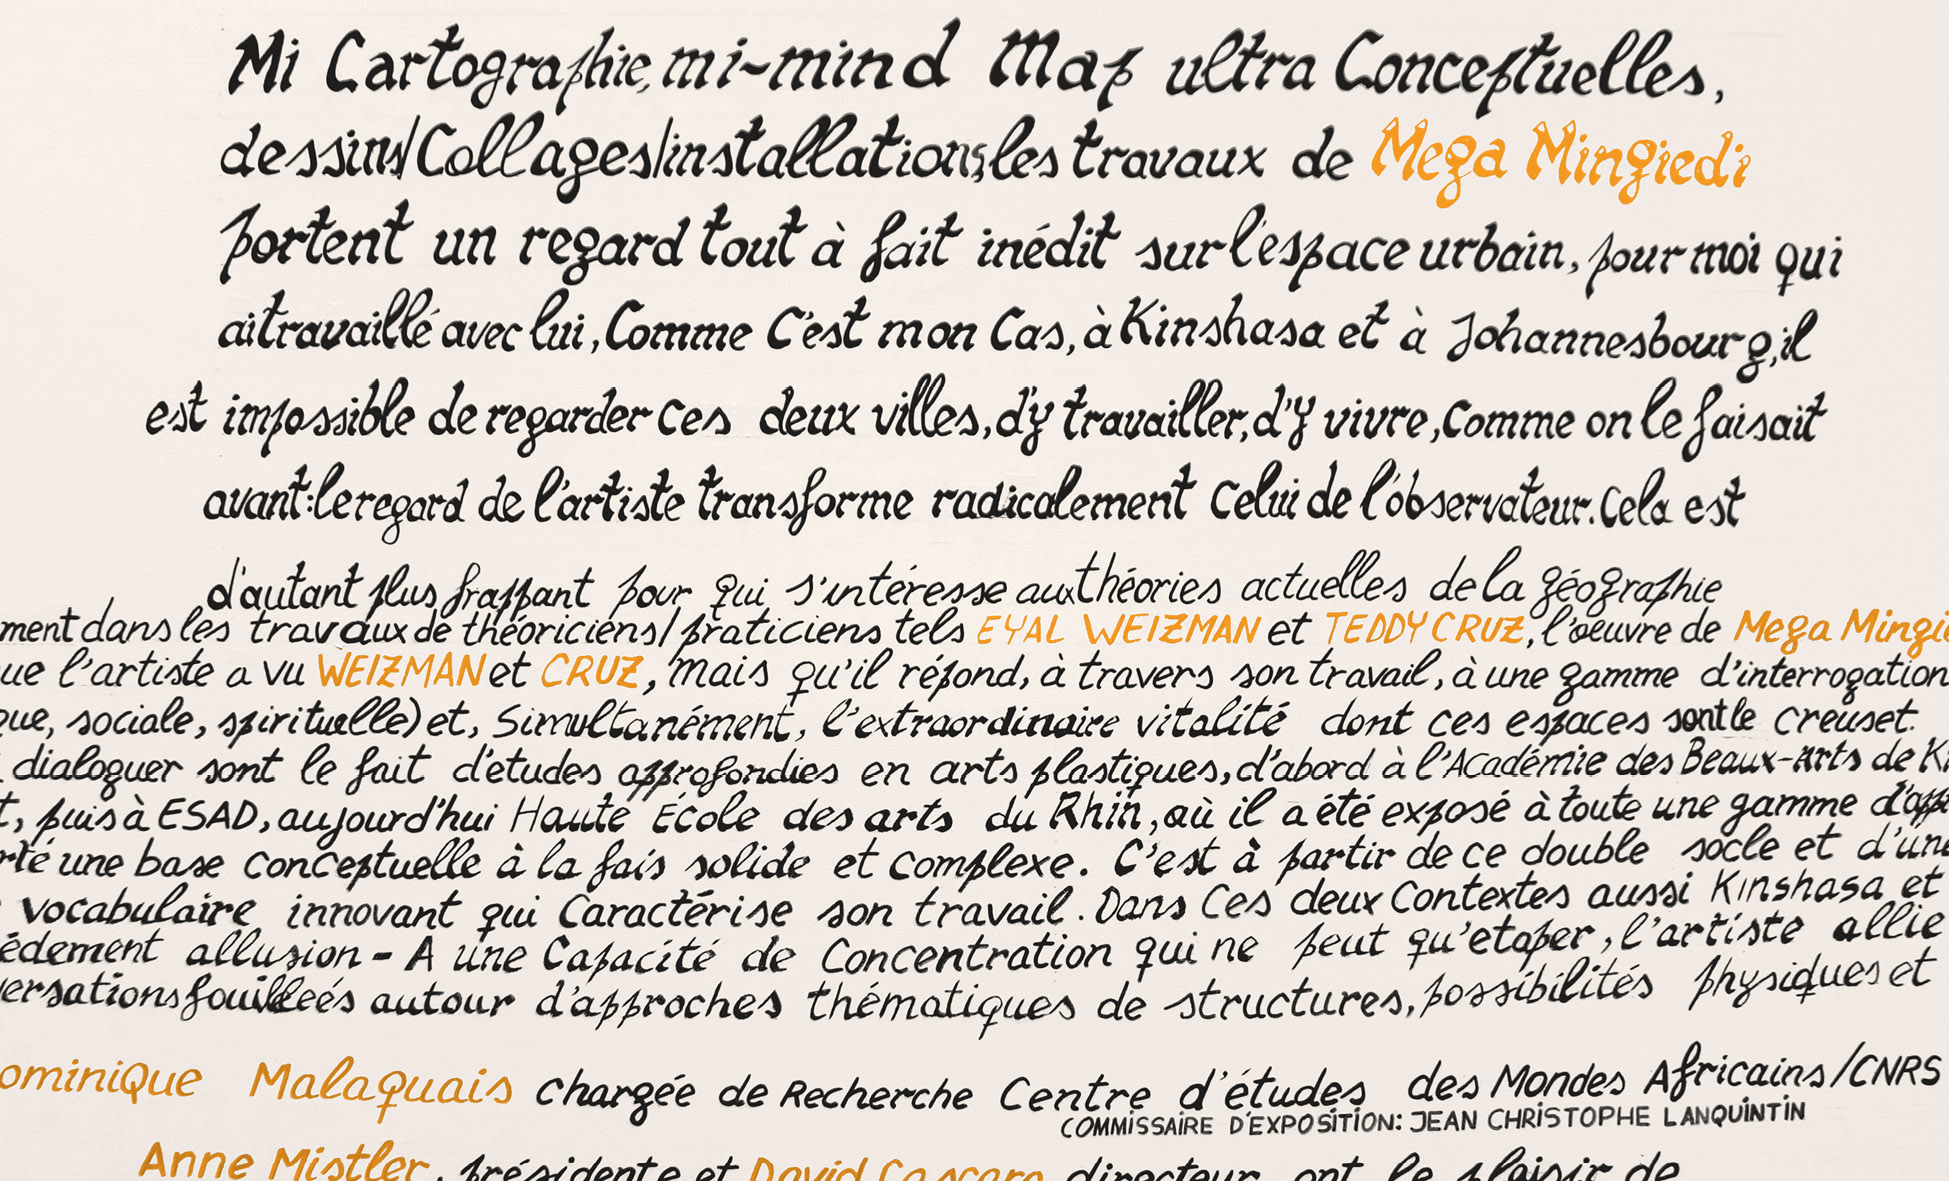 Mi Cartographie, mi-mind Map ultra Conceptuelles,
dessins/Collages/installations, les travaux de Mega Mingiedi
portent un regard tout à fait inédit sur l'espace urbain, pour moi qui
ai travaillé avec lui, Comme C'est mon Cas, à Kinshasa et à Johannesbourg, il
est impossible de regarder ces deux villes, d'y travailler, d'y vivre, Comme on le faisait
avant: le regard de l'artiste transforme radicalement Celui de l'observateur. Cela est
d'autant plus frappant pour qui s'intéresse aux théories actuelles de la géographie
ment dans les travaux de théoriciens/praticiens tels EYAL WEIZMAN et TEDDY CRUZ, l'oeuvre de Mega Mingie
ue l'artiste a vu WEIZMAN et CRUZ, mais qu'il répond, à travers son travail, à une gamme d'interrogation
que, sociale, spirituelle) et, Simultanément, l'extraordinaire vitalité dont ces espaces sont le creuset.
dialoguer sont le fait d'études approfondies en arts plastiques, d'abord à l'Académie des Beaux-Arts de Ki
t, puis à ESAD, aujourd'hui Haute École des arts du Rhin, où il a été exposé à toute une gamme d'app
rté une base conceptuelle à la fais solide et complexe. C'est à partir de ce double socle et d'une
vocabulaire innovant qui Caractérise son travail. Dans Ces deux Contextes aussi Kinshasa et
èdement allusion - A une Capacité de Concentration qui ne peut qu'etaper, l'artiste allie
versations fouilleés autour d'approches thématiques de structures, possibilités physiques et
ominique Malaquais chargée de Recherche Centre d'études des Mondes Africains/CNRS
COMMISSAIRE D'EXPOSITION: JEAN CHRISTOPHE LANQUINTIN
Anne Mistler, présidente et David Cascaro directeur ont le plaisir de